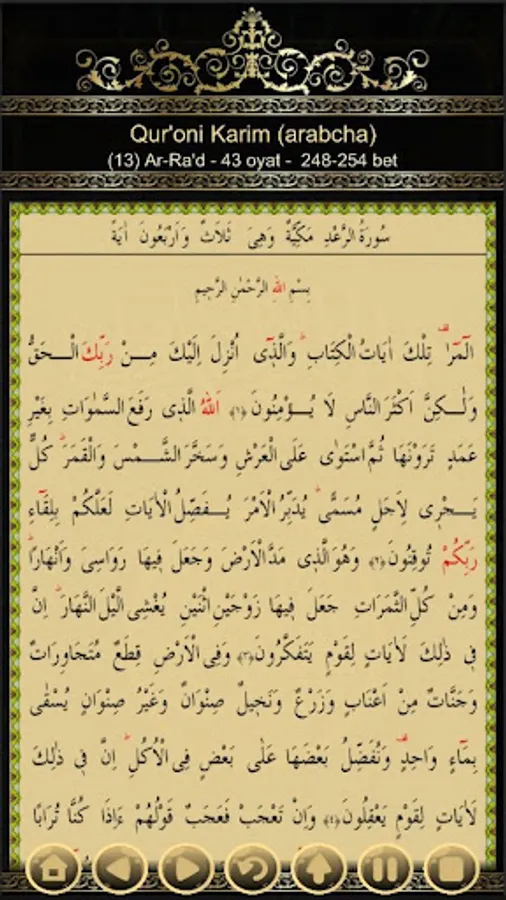 Qur'oni Karim (arabcha)
(13) Ar-Ra'd - 43 oyat - 248-254 bet
سُورَةُ الرَّعْدِ مَكِّيَّةٌ وَهِىَ ثَلَاثٌ وَاَرْبَعُونَ اٰيَةً
بِسْمِ اللّٰهِ الرَّحْمٰنِ الرَّحٖيمِ
الٓمٓرٰ تِلْكَ اٰيَاتُ الْكِتَابِ وَالَّذٖٓى اُنْزِلَ اِلَيْكَ مِنْ رَبِّكَ الْحَقُّ
وَلٰكِنَّ اَكْثَرَ النَّاسِ لَا يُؤْمِنُونَ ﴿١﴾ اَللّٰهُ الَّذٖى رَفَعَ السَّمٰوَاتِ بِغَيْرِ
عَمَدٍ تَرَوْنَهَا ثُمَّ اسْتَوٰى عَلَى الْعَرْشِ وَسَخَّرَ الشَّمْسَ وَالْقَمَرَ كُلٌّ
يَجْرٖى لِاَجَلٍ مُسَمًّى يُدَبِّرُ الْاَمْرَ يُفَصِّلُ الْاٰيَاتِ لَعَلَّكُمْ بِلِقَٓاءِ
رَبِّكُمْ تُوقِنُونَ ﴿٢﴾ وَهُوَ الَّذٖى مَدَّ الْاَرْضَ وَجَعَلَ فٖيهَا رَوَاسِىَ وَاَنْهَارًا
وَمِنْ كُلِّ الثَّمَرَاتِ جَعَلَ فٖيهَا زَوْجَيْنِ اثْنَيْنِ يُغْشِى الَّيْلَ النَّهَارَ اِنَّ
فٖى ذٰلِكَ لَاٰيَاتٍ لِقَوْمٍ يَتَفَكَّرُونَ ﴿٣﴾ وَفِى الْاَرْضِ قِطَعٌ مُتَجَاوِرَاتٌ
وَجَنَّاتٌ مِنْ اَعْنَابٍ وَزَرْعٌ وَنَخٖيلٌ صِنْوَانٌ وَغَيْرُ صِنْوَانٍ يُسْقٰى
بِمَٓاءٍ وَاحِدٍ وَنُفَضِّلُ بَعْضَهَا عَلٰى بَعْضٍ فِى الْاُكُلِ اِنَّ فٖى ذٰلِكَ
لَاٰيَاتٍ لِقَوْمٍ يَعْقِلُونَ ﴿٤﴾ وَاِنْ تَعْجَبْ فَعَجَبٌ قَوْلُهُمْ ءَاِذَا كُنَّا تُرَابًا